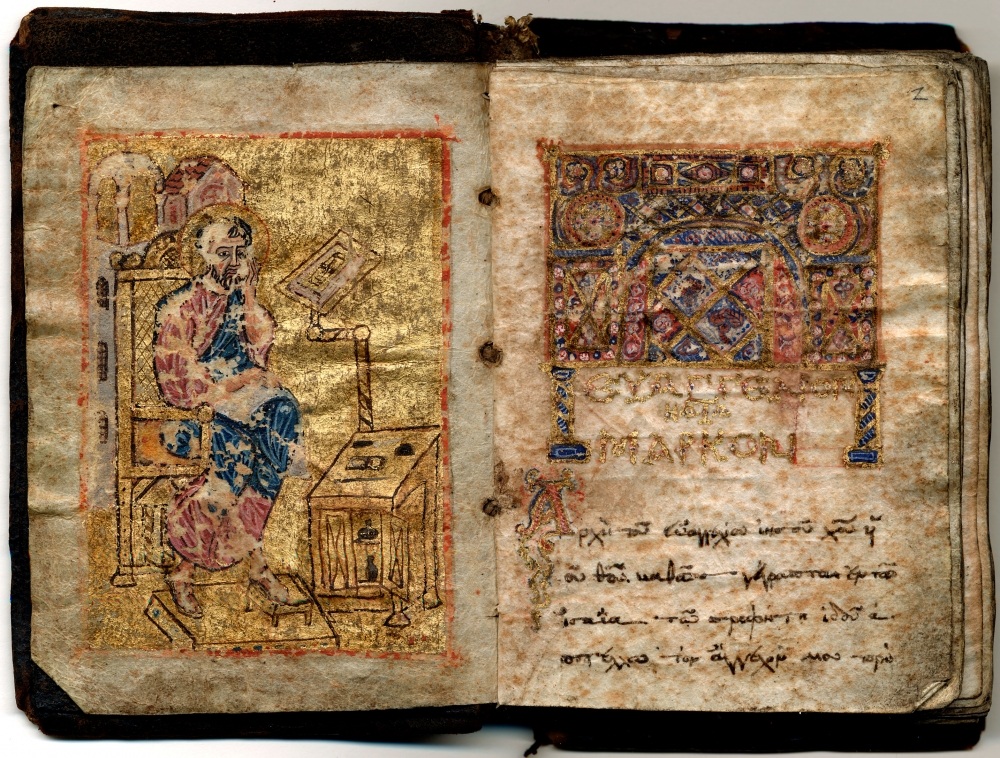 2
ΕΥΑΓΓΕΛΙΟΝ
ΚΑΤΑ
ΜΑΡΚΟΝ
Ἀρχὴ τοῦ εὐαγγελίου ἰησοῦ χυ ὑι
οῦ θεοῦ καθὼς γέγραπται ἐν τῶ
ἰσαΐα τῶ προφήτη ἰδοὺ ἀ
ποστέλλω τὸν ἄγγελόν μου πρὸ